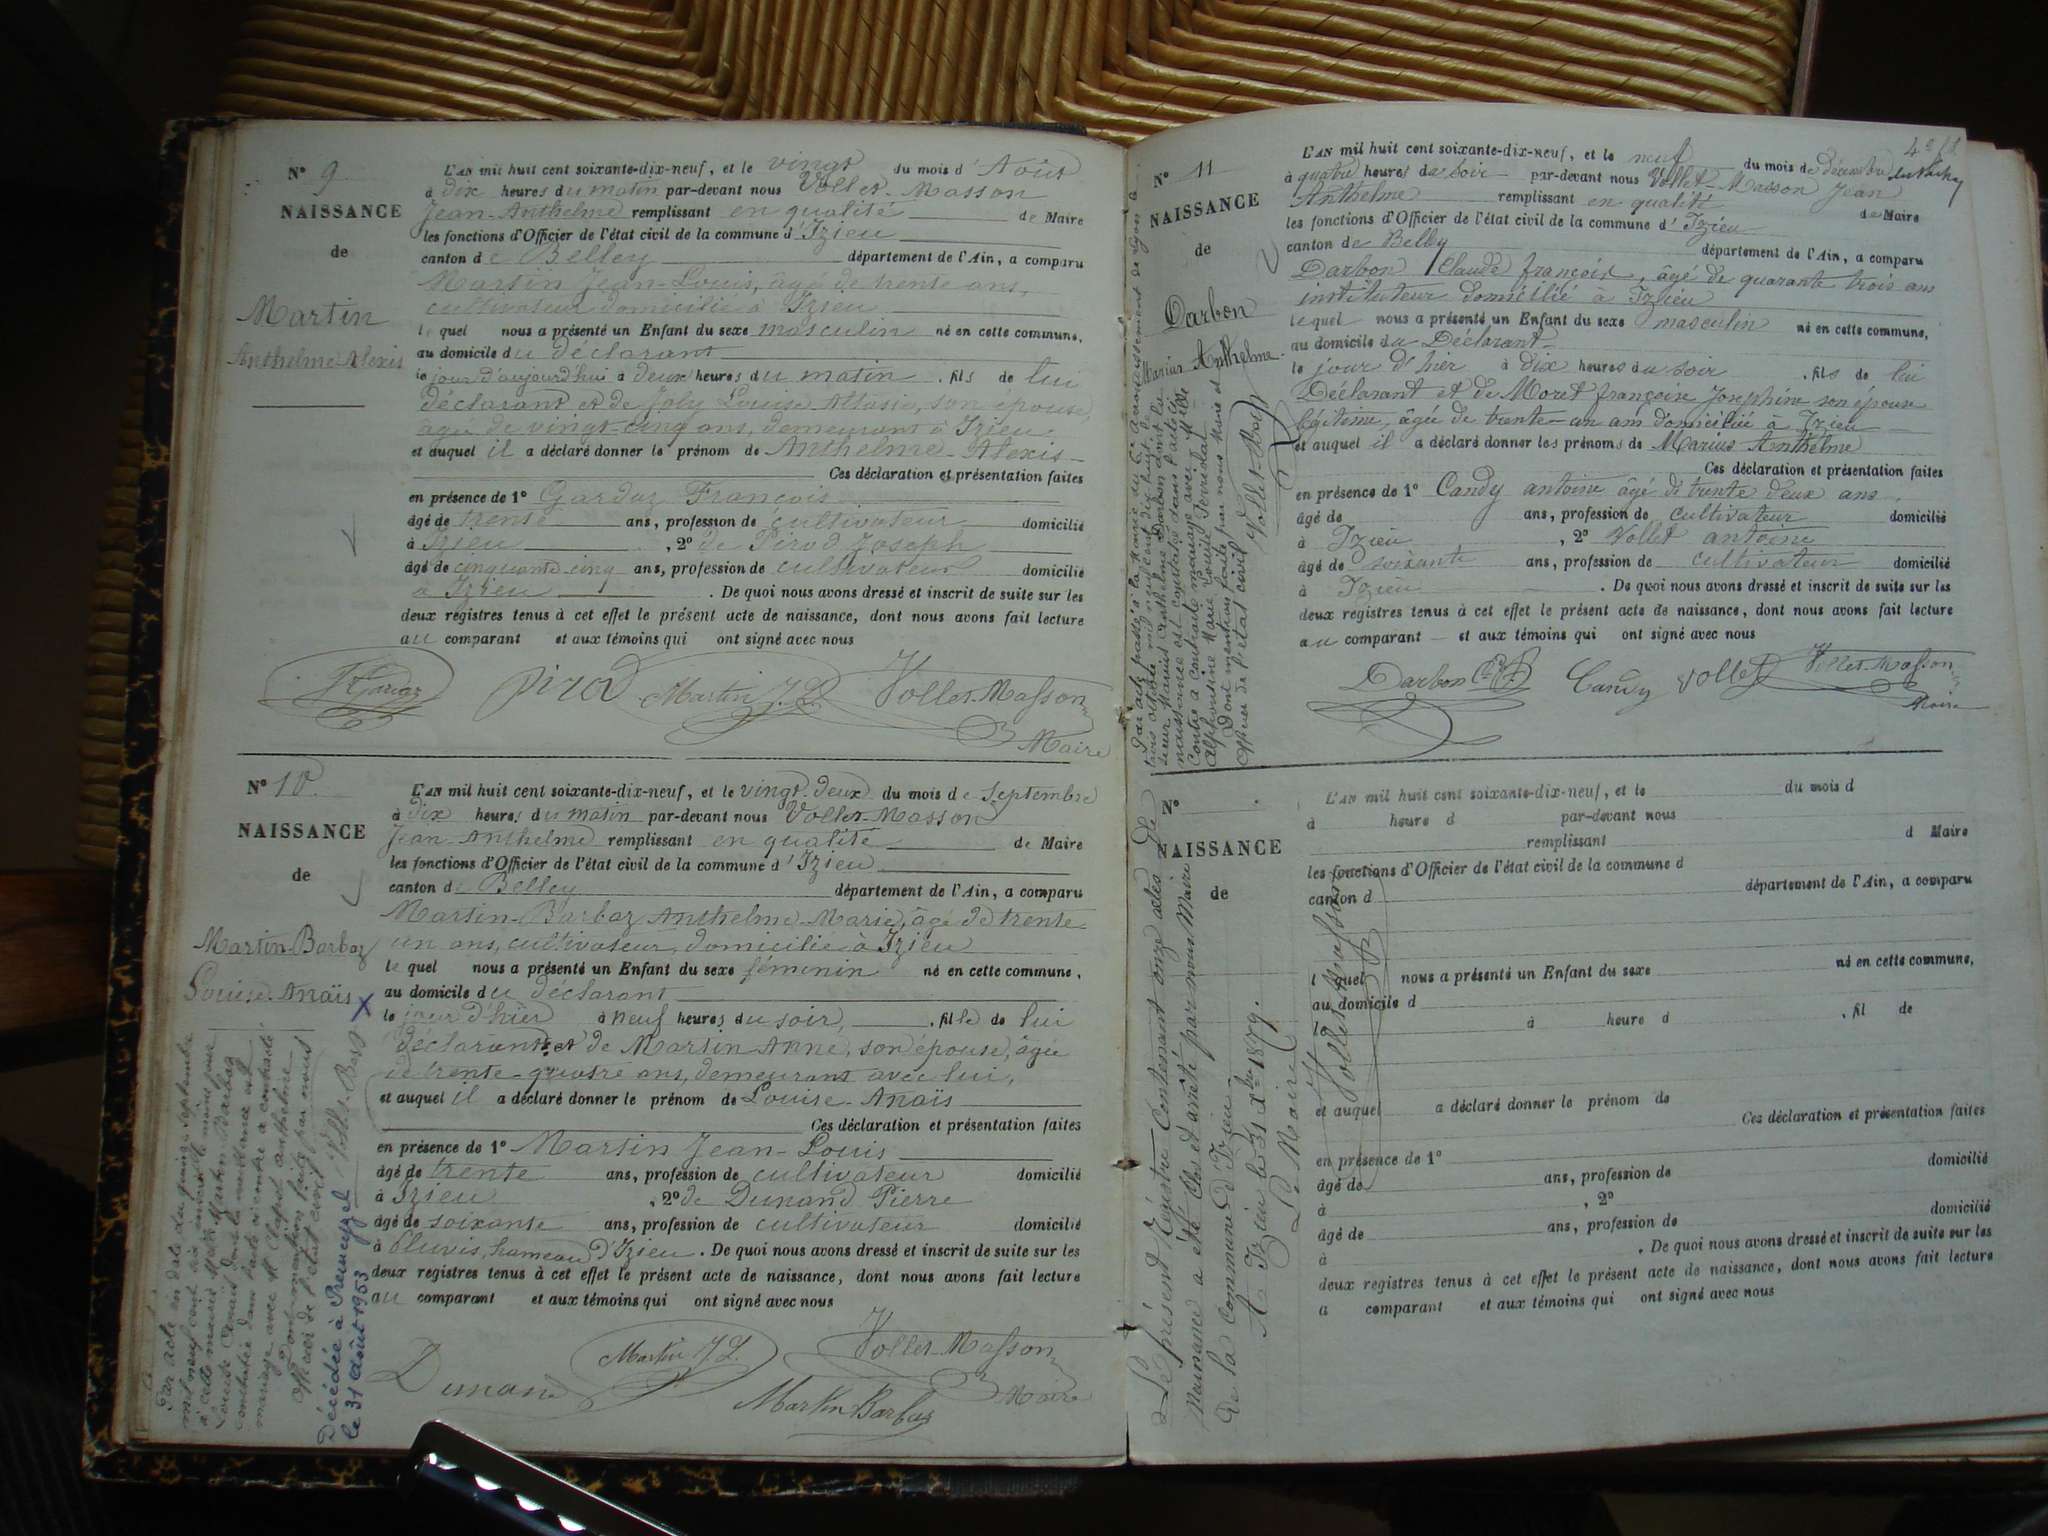 N° 9
NAISSANCE
de
Martin
Anthelme Alexis
L'AN mil huit cent soixante-dix-neuf, et le vingt du mois d'Août
à dix heures du matin par-devant nous Vollet-Masson
Jean-Anthelme remplissant en qualité de Maire
les fonctions d'Officier de l'état civil de la commune d'Izieu
canton de Belley département de l'Ain, a comparu
Martin Jean-Louis, âgé de trente ans,
cultivateur domicilié à Izieu
lequel nous a présenté un Enfant du sexe masculin né en cette commune,
au domicile du déclarant
le jour d'aujourd'hui à deux heures du matin . fils de lui
déclarant et de Joly Louise son épouse,
âgée de vingt-cinq ans, demeurant à Izieu
et auquel il a déclaré donner le prénom de Anthelme-Alexis
Ces déclaration et présentation faites
en présence de 1° Gardaz François
âgé de trente ans, profession de cultivateur domicilié
à Izieu , 2° de Pirod Joseph
âgé de cinquante cinq ans, profession de cultivateur domicilié
à Izieu . De quoi nous avons dressé et inscrit de suite sur les
deux registres tenus à cet effet le présent acte de naissance, dont nous avons fait lecture
au comparant et aux témoins qui ont signé avec nous
Pirod Martin J. L. Vollet-Masson
Maire
N° 10
NAISSANCE
de
Martin-Barbaz
Louise-Anaïs
L'AN mil huit cent soixante-dix-neuf, et le vingt-deux du mois de Septembre
à dix heures du matin par-devant nous Vollet-Masson
Jean-Anthelme remplissant en qualité de Maire
les fonctions d'Officier de l'état civil de la commune d'Izieu
canton de Belley département de l'Ain, a comparu
Martin-Barbaz Anthelme-Marie, âgé de trente
un ans, cultivateur, domicilié à Izieu
lequel nous a présenté un Enfant du sexe féminin né en cette commune,
au domicile du déclarant
le jour d'hier à neuf heures du soir, . fille de lui
déclarant et de Martin Anne, son épouse, âgée
de trente-quatre ans, demeurant avec lui,
et auquel il a déclaré donner le prénom de Louise-Anaïs
Ces déclaration et présentation faites
en présence de 1° Martin Jean-Louis
âgé de trente ans, profession de cultivateur domicilié
à Izieu , 2° de Dunand Pierre
âgé de soixante ans, profession de cultivateur domicilié
à hameau d'Izieu . De quoi nous avons dressé et inscrit de suite sur les
deux registres tenus à cet effet le présent acte de naissance, dont nous avons fait lecture
au comparant et aux témoins qui ont signé avec nous
Dunand Martin J. L. Vollet-Masson
Martin Barbaz Maire
Par acte en date du quinze septembre
mil neuf cent
Louise Anaïs dont la naissance est
constatée dans l'acte ci-contre a contracté
mariage avec anthelme
Dont mention faite par nous
officier de l'état civil
Décédée à Premeyzel
le 31 août 1953
N° 11
NAISSANCE
de
Darbon
Marius Anthelme
L'AN mil huit cent soixante-dix-neuf, et le neuf du mois de décembre
à quatre heures du soir par-devant nous Vollet-Masson Jean
Anthelme remplissant en qualité de Maire
les fonctions d'Officier de l'état civil de la commune d'Izieu
canton de Belley département de l'Ain, a comparu
Darbon Claude françois, âgé de quarante trois ans
instituteur domicilié à Izieu
lequel nous a présenté un Enfant du sexe masculin né en cette commune,
au domicile du Déclarant
le jour d'hier à dix heures du soir . fils de lui
Déclarant et de Moret françoise Josephine son épouse
légitime, âgée de trente-un ans domiciliée à Izieu
et auquel il a déclaré donner les prénoms de Marius Anthelme
Ces déclaration et présentation faites
en présence de 1° Candy antoine âgé de trente deux ans
âgé de ans, profession de cultivateur domicilié
à Izieu , 2° Vollet antoine
âgé de soixante ans, profession de cultivateur domicilié
à Izieu . De quoi nous avons dressé et inscrit de suite sur les
deux registres tenus à cet effet le présent acte de naissance, dont nous avons fait lecture
au comparant et aux témoins qui ont signé avec nous
Darbon Candy Vollet Vollet-Masson
Maire
Par acte passé à la mairie du arrondissement de Lyon le
trois octobre mil neuf cent
sieur Marius Anthelme Darbon dont la
naissance est constatée dans l'acte ci
contre a contracté mariage avec Melle
Alphonsine Marie Louise
Dont mention faite par nous Maire et
officier de l'état civil
N°
NAISSANCE
de
L'AN mil huit cent soixante-dix-neuf, et le du mois d
à heure d par-devant nous
remplissant d Maire
les fonctions d'Officier de l'état civil de la commune d
canton d département de l'Ain, a comparu
l quel nous a présenté un Enfant du sexe né en cette commune,
au domicile d
l à heure d . fil de
et auquel a déclaré donner le prénom de
Ces déclaration et présentation faites
en présence de 1°
âgé de ans, profession de domicilié
à , 2°
âgé de ans, profession de domicilié
à . De quoi nous avons dressé et inscrit de suite sur les
deux registres tenus à cet effet le présent acte de naissance, dont nous avons fait lecture
a comparant et aux témoins qui ont signé avec nous
Le présent Régistre Contenant onze actes de
Naissance a été Clos et arrêté par nous Maire
de la Commune d'Izieu
A Izieu le 31 Xbre 1879.
Le Maire
Vollet-Masson